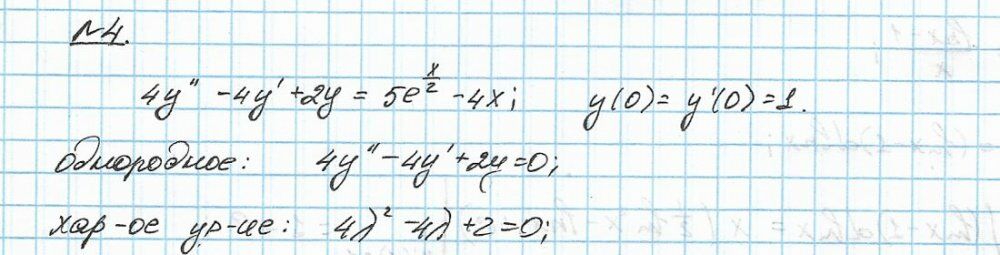 №4.
4y'' - 4y' + 2y = 5e^{x/2} - 4x; y(0) = y'(0) = 1.
однородное: 4y'' - 4y' + 2y = 0;
хар-ое ур-ие: 4λ² - 4λ + 2 = 0;